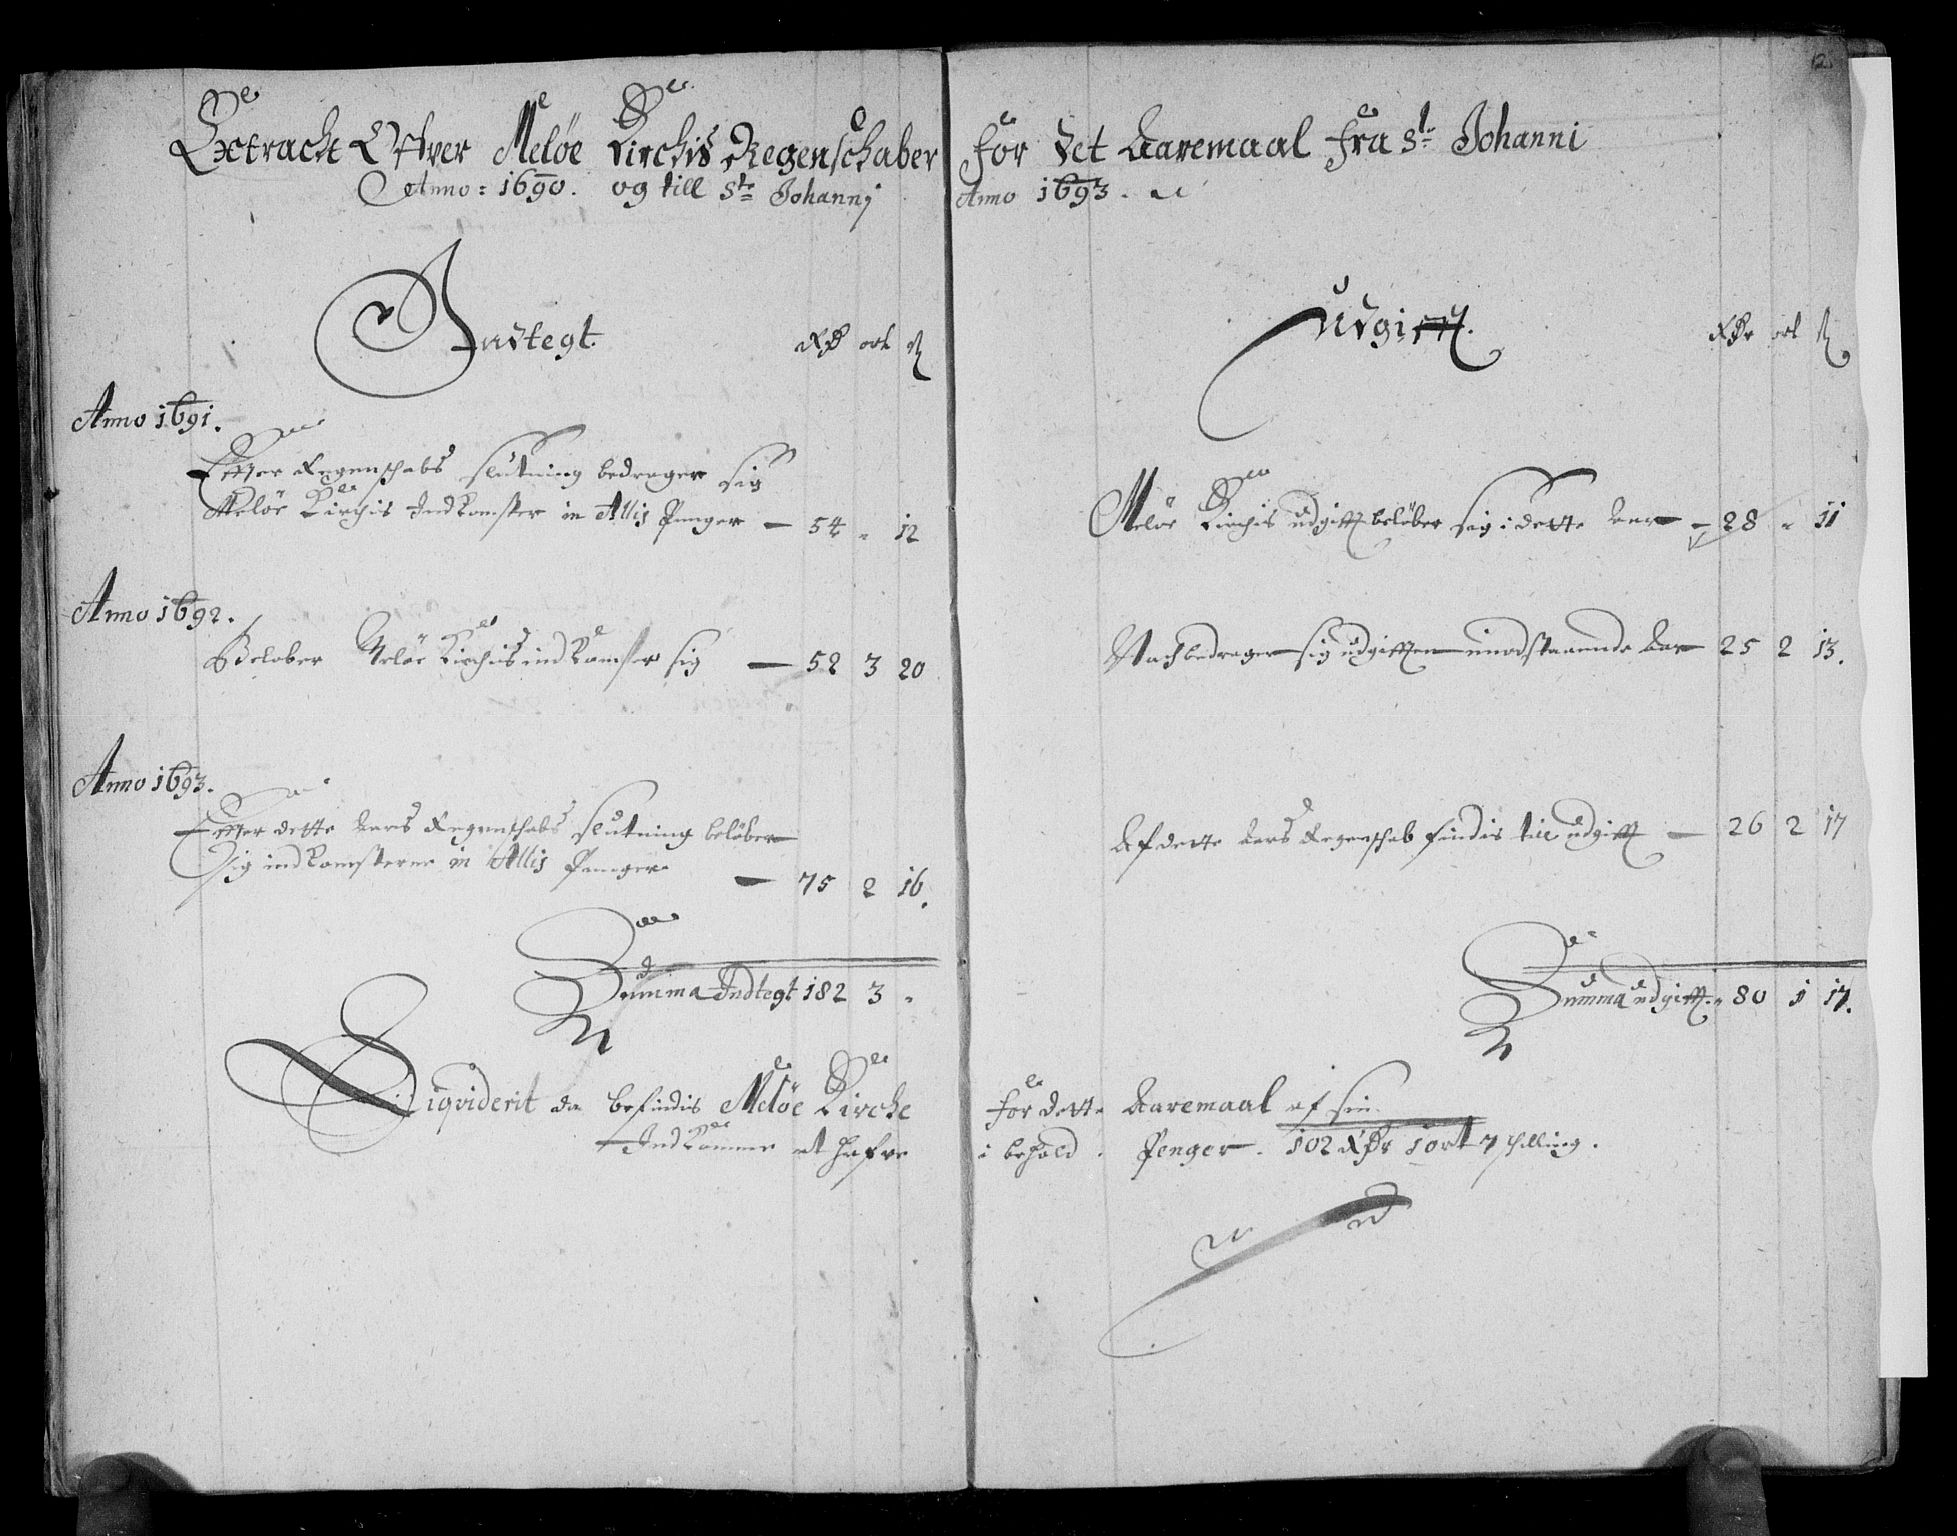 Extract Ofver Meløe Kirchis Regenschaber
Anno: 1690. og till Ste Johannj
Indtegt. RDr ort ß
Anno 1691.
Effter Regenschabs slutning bedrager sig
Meløe Kirchis Indkomster in Allis Penger — 54 - 12
Anno 1692.
Beløber Meløe Kirchis indkomster sig — 52 3 20
Anno 1693.
Effter dette Aars Regenschabs slutning beløber
sig indkomsterne in Allis Penger — 75 2 16.
Summa Indtegt 182 3 -
Liqviderit da befindis Meløe Kirche
Indkomme at hafve
2
for det Aaremaal fra St Johanni
Anno 1693.
Udgifft. RDr ort ß
Meløe Kirchis udgifft beløber sig i dette Aar — 28 - 11
Noch bedrager sig udgifften imodstaaende Aar 25 2 13.
Af dette Aars Regenschab findis till udgifft — 26 2 17
Summa udgifft. 80 1 17.
for dette Aaremaal af sin
i behold. Penger. 102 RDr 1 ort 7 skilling.